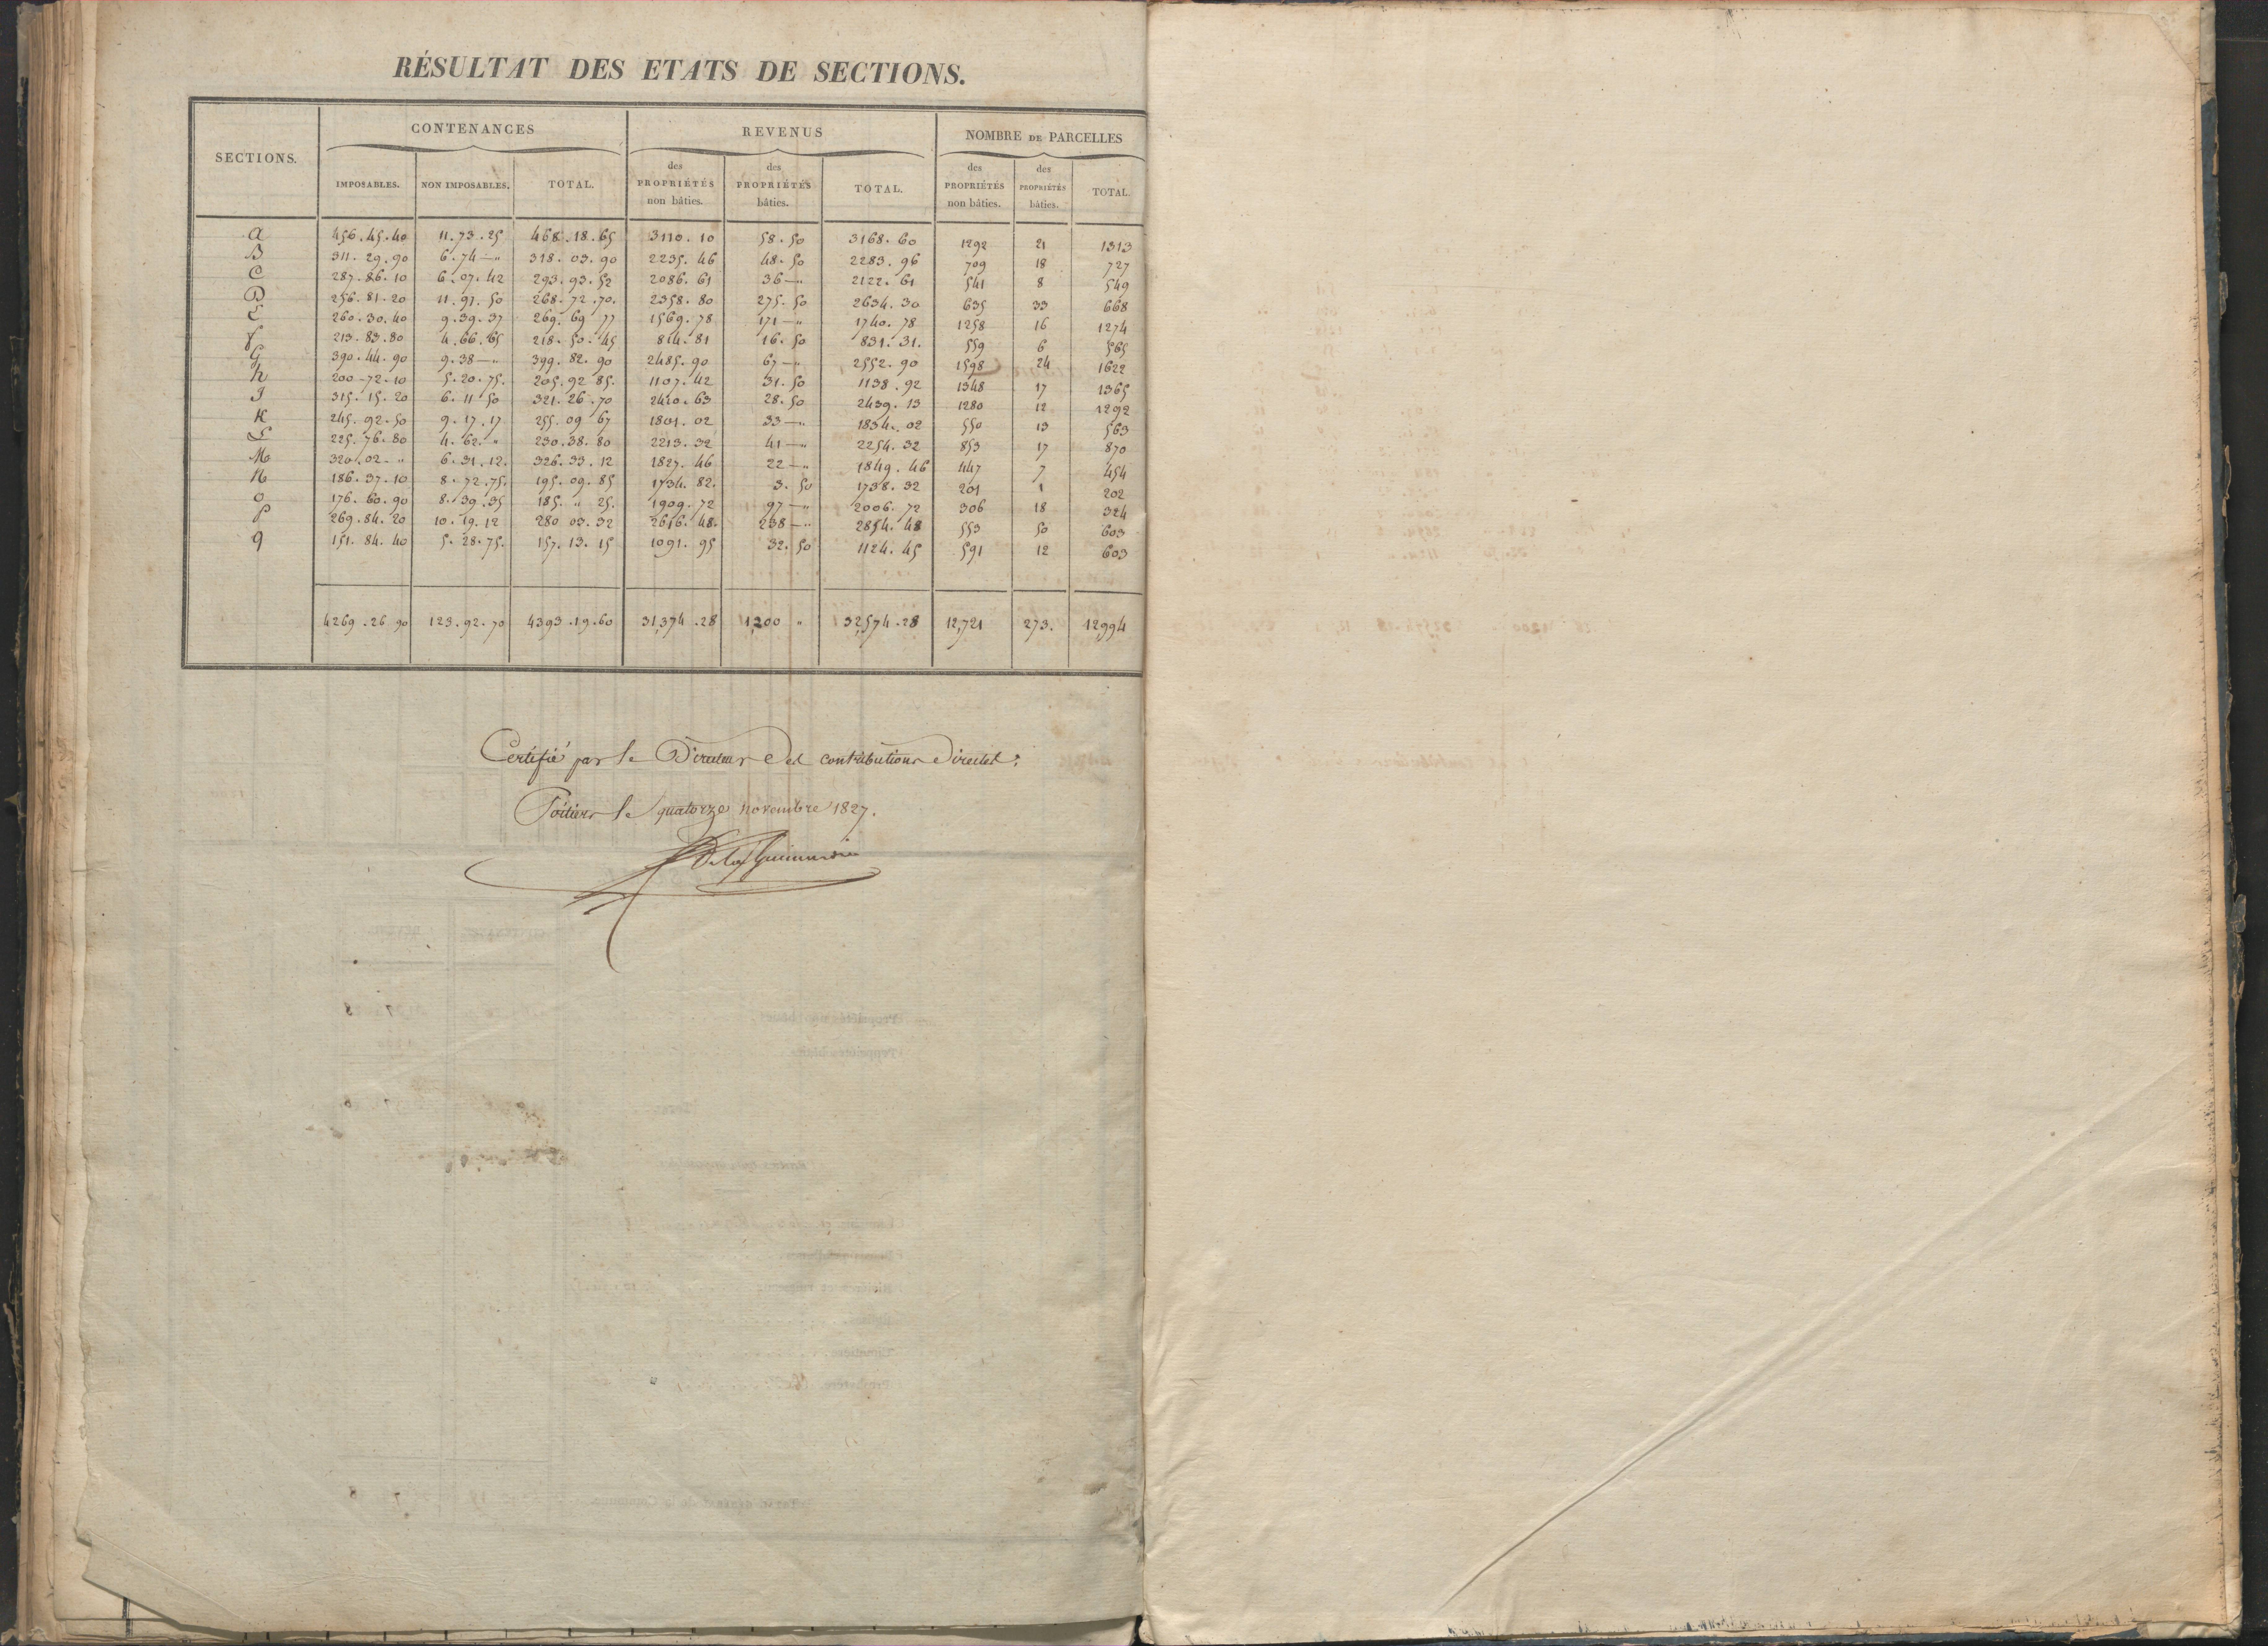 RÉSULTAT DES ETATS DE SECTIONS.
SECTIONS. CONTENANCES REVENUS NOMBRE DE PARCELLES
IMPOSABLES. NON IMPOSABLES. TOTAL. des PROPRIÉTÉS non bâties. des PROPRIÉTÉS bâties. TOTAL. des PROPRIÉTÉS non bâties. des PROPRIÉTÉS bâties. TOTAL.
A 456.45.40 11.73.25 468.18.65 3110.10 58.50 3168.60 1292 21 1313
B 311.29.90 6.74—" 318.03.90 2235.46 48.50 2283.96 709 18 727
C 287.86.10 6.07.42 293.93.52 2086.61 36—" 2122.61 541 8 549
D 256.81.20 11.91.50 268.72.70. 2358.80 275.50 2634.30 635 33 668
E 260.30.40 9.39.37 269.69 77 1569.78 171—" 1740.78 1258 16 1274
f 213.83.80 4.66.65 218.50.45 814.81 16.50 831.31. 559 6 565
G 390.44.90 9.38—" 399.82.90 2485.90 67—" 2552.90 1598 24 1622
h 200-72.10 5.20.75. 205.92 85. 1107.42 31.50 1138.92 1348 17 1365
I 315.15.20 6.11 50 321.26.70 2410.63 28.50 2439.13 1280 12 1292
K 245.92.50 9.17.17 255.09 67 1801.02 33—" 1834.02 550 13 563
L 225.76.80 4.62.." 230.38.80 2213.32 41—" 2254.32 853 17 870
M 320.02-" 6.31.12. 326.33.12 1827.46 22—" 1849.46 447 7 454
N 186.37.10 8.72.75. 195.09.85 1734.82. 3.50 1738.32 201 1 202
O 176.60.90 8.39.35 185." 25. 1909.72 97—" 2006.72 306 18 324
P 269.84.20 10.19.12 280 03.32 2616.48. 238—" 2854.48 553 50 603
q 151.84.40 5.28.75. 157.13.15 1091.95 32.50 1124.45 591 12 603
4269.26 90 123.92.70 4393.19.60 31,374.28 1,200 " 32,574.28 12,721 273. 12994
Certifié par le Directeur des contributions directes:
Poitiers le quatorze novembre 1827.